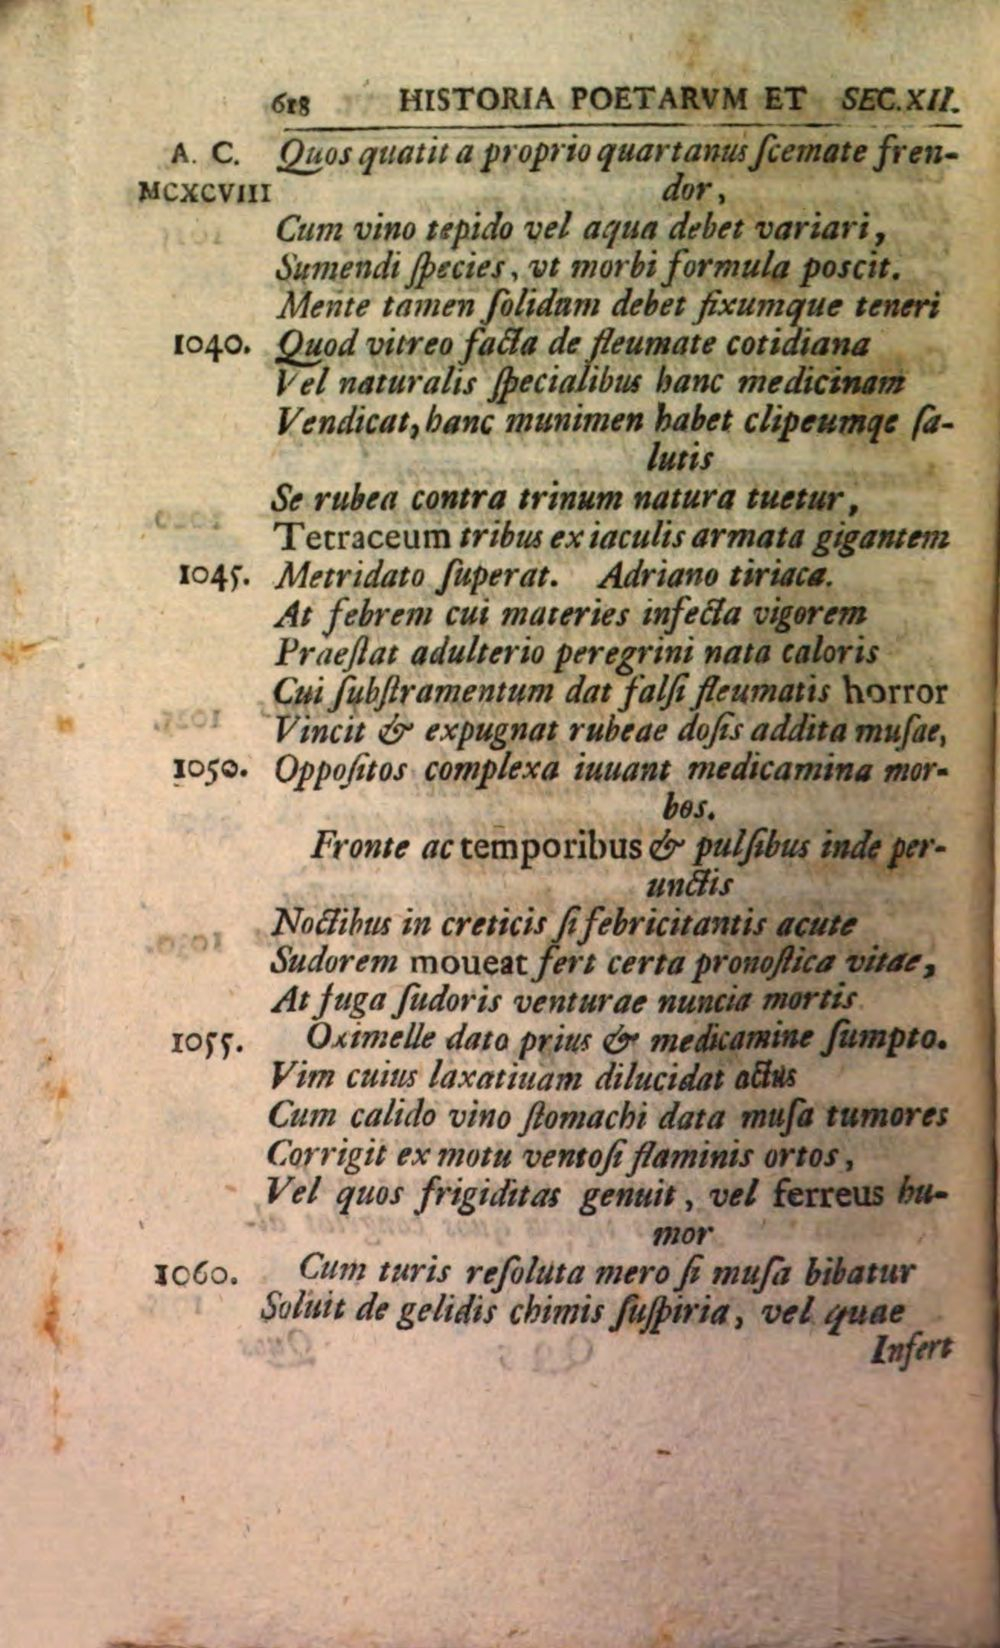 618 HISTORIA POETARVM ET SEC.XII.
A. C. Quos quatit a proprio quartanus ſcemate fren-
MCXCVIII dor,
Cum vino tepido vel aqua debet variari,
Sumendi ſpecies, vt morbi formula poscit.
Mente tamen ſolidam debet fixumque teneri
1040. Quod vitreo facta de fleumate cotidiana
Vel naturalis ſpecialibus hanc medicinam
Vendicat, hanc munimen habet clipeumqe ſa-
lutis
Se rubea contra trinum natura tuetur,
Tetraceum tribus ex iaculis armata gigantem
1045. Metridato ſuperat. Adriano tiriaca.
At febrem cui materies infecta vigorem
Praeſtat adulterio peregrini nata caloris
Cui ſubſtramentum dat falſi fleumatis horror
Vincit & expugnat rubeae doſis addita muſae,
1050. Oppoſitos complexa iuuant medicamina mor-
bos.
Fronte ac temporibus & pulſibus inde per-
unctis
Noctibus in creticis ſi febricitantis acute
Sudorem moueat fert certa pronoſtica vitae,
At fuga ſudoris venturae nuncia mortis
1055. Oximelle dato prius & medicamine ſumpto.
Vim cuius laxatiuam dilucidat actus
Cum calido vino ſtomachi data muſa tumores
Corrigit ex motu ventoſi flaminis ortos,
Vel quos frigiditas genuit, vel ferreus hu-
mor
1060. Cum turis reſoluta mero ſi muſa bibatur
Soluit de gelidis chimis ſuſpiria, vel quae
Infert